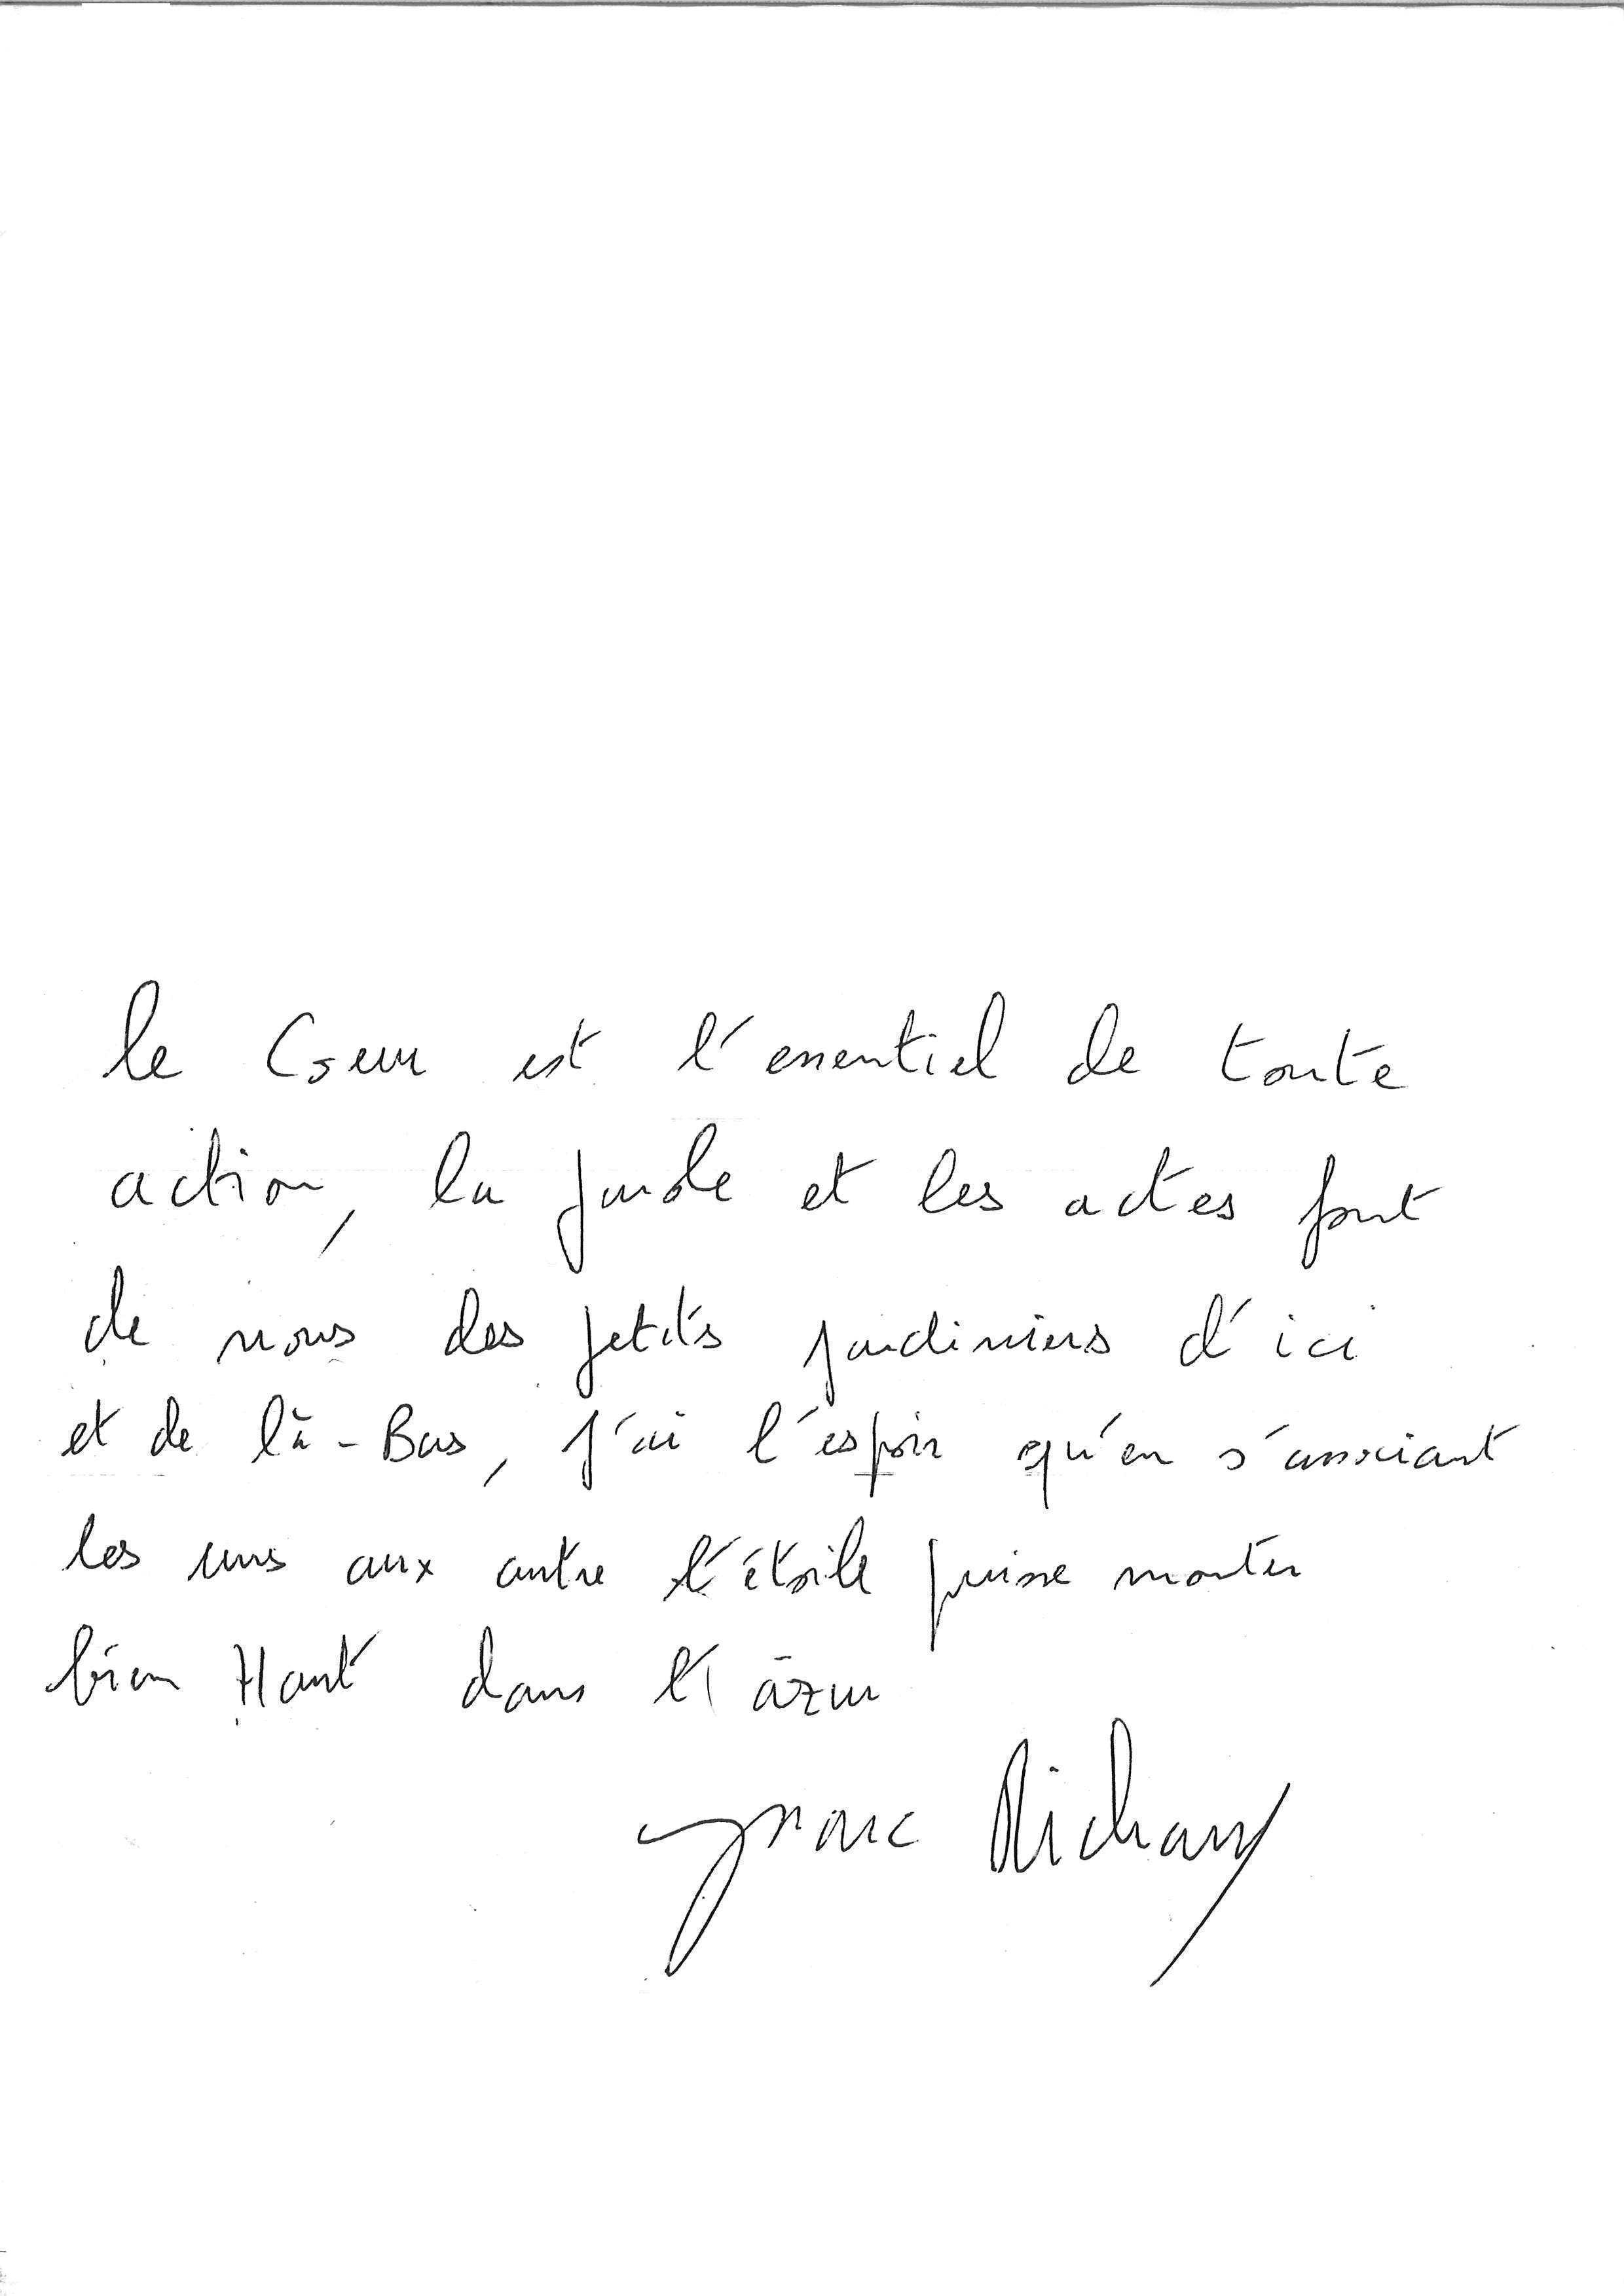 le Coeur est l'essentiel de toute
action, la parole et les actes font
de nous des petits jardiniers d'ici
et de là-Bas, j'ai l'espoir qu'en s'associant
les uns aux autre l'étoile puisse monter
bien Haut dans l'azur
Marc